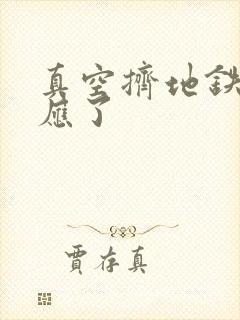 真空擠地鉄
應了
賈存真